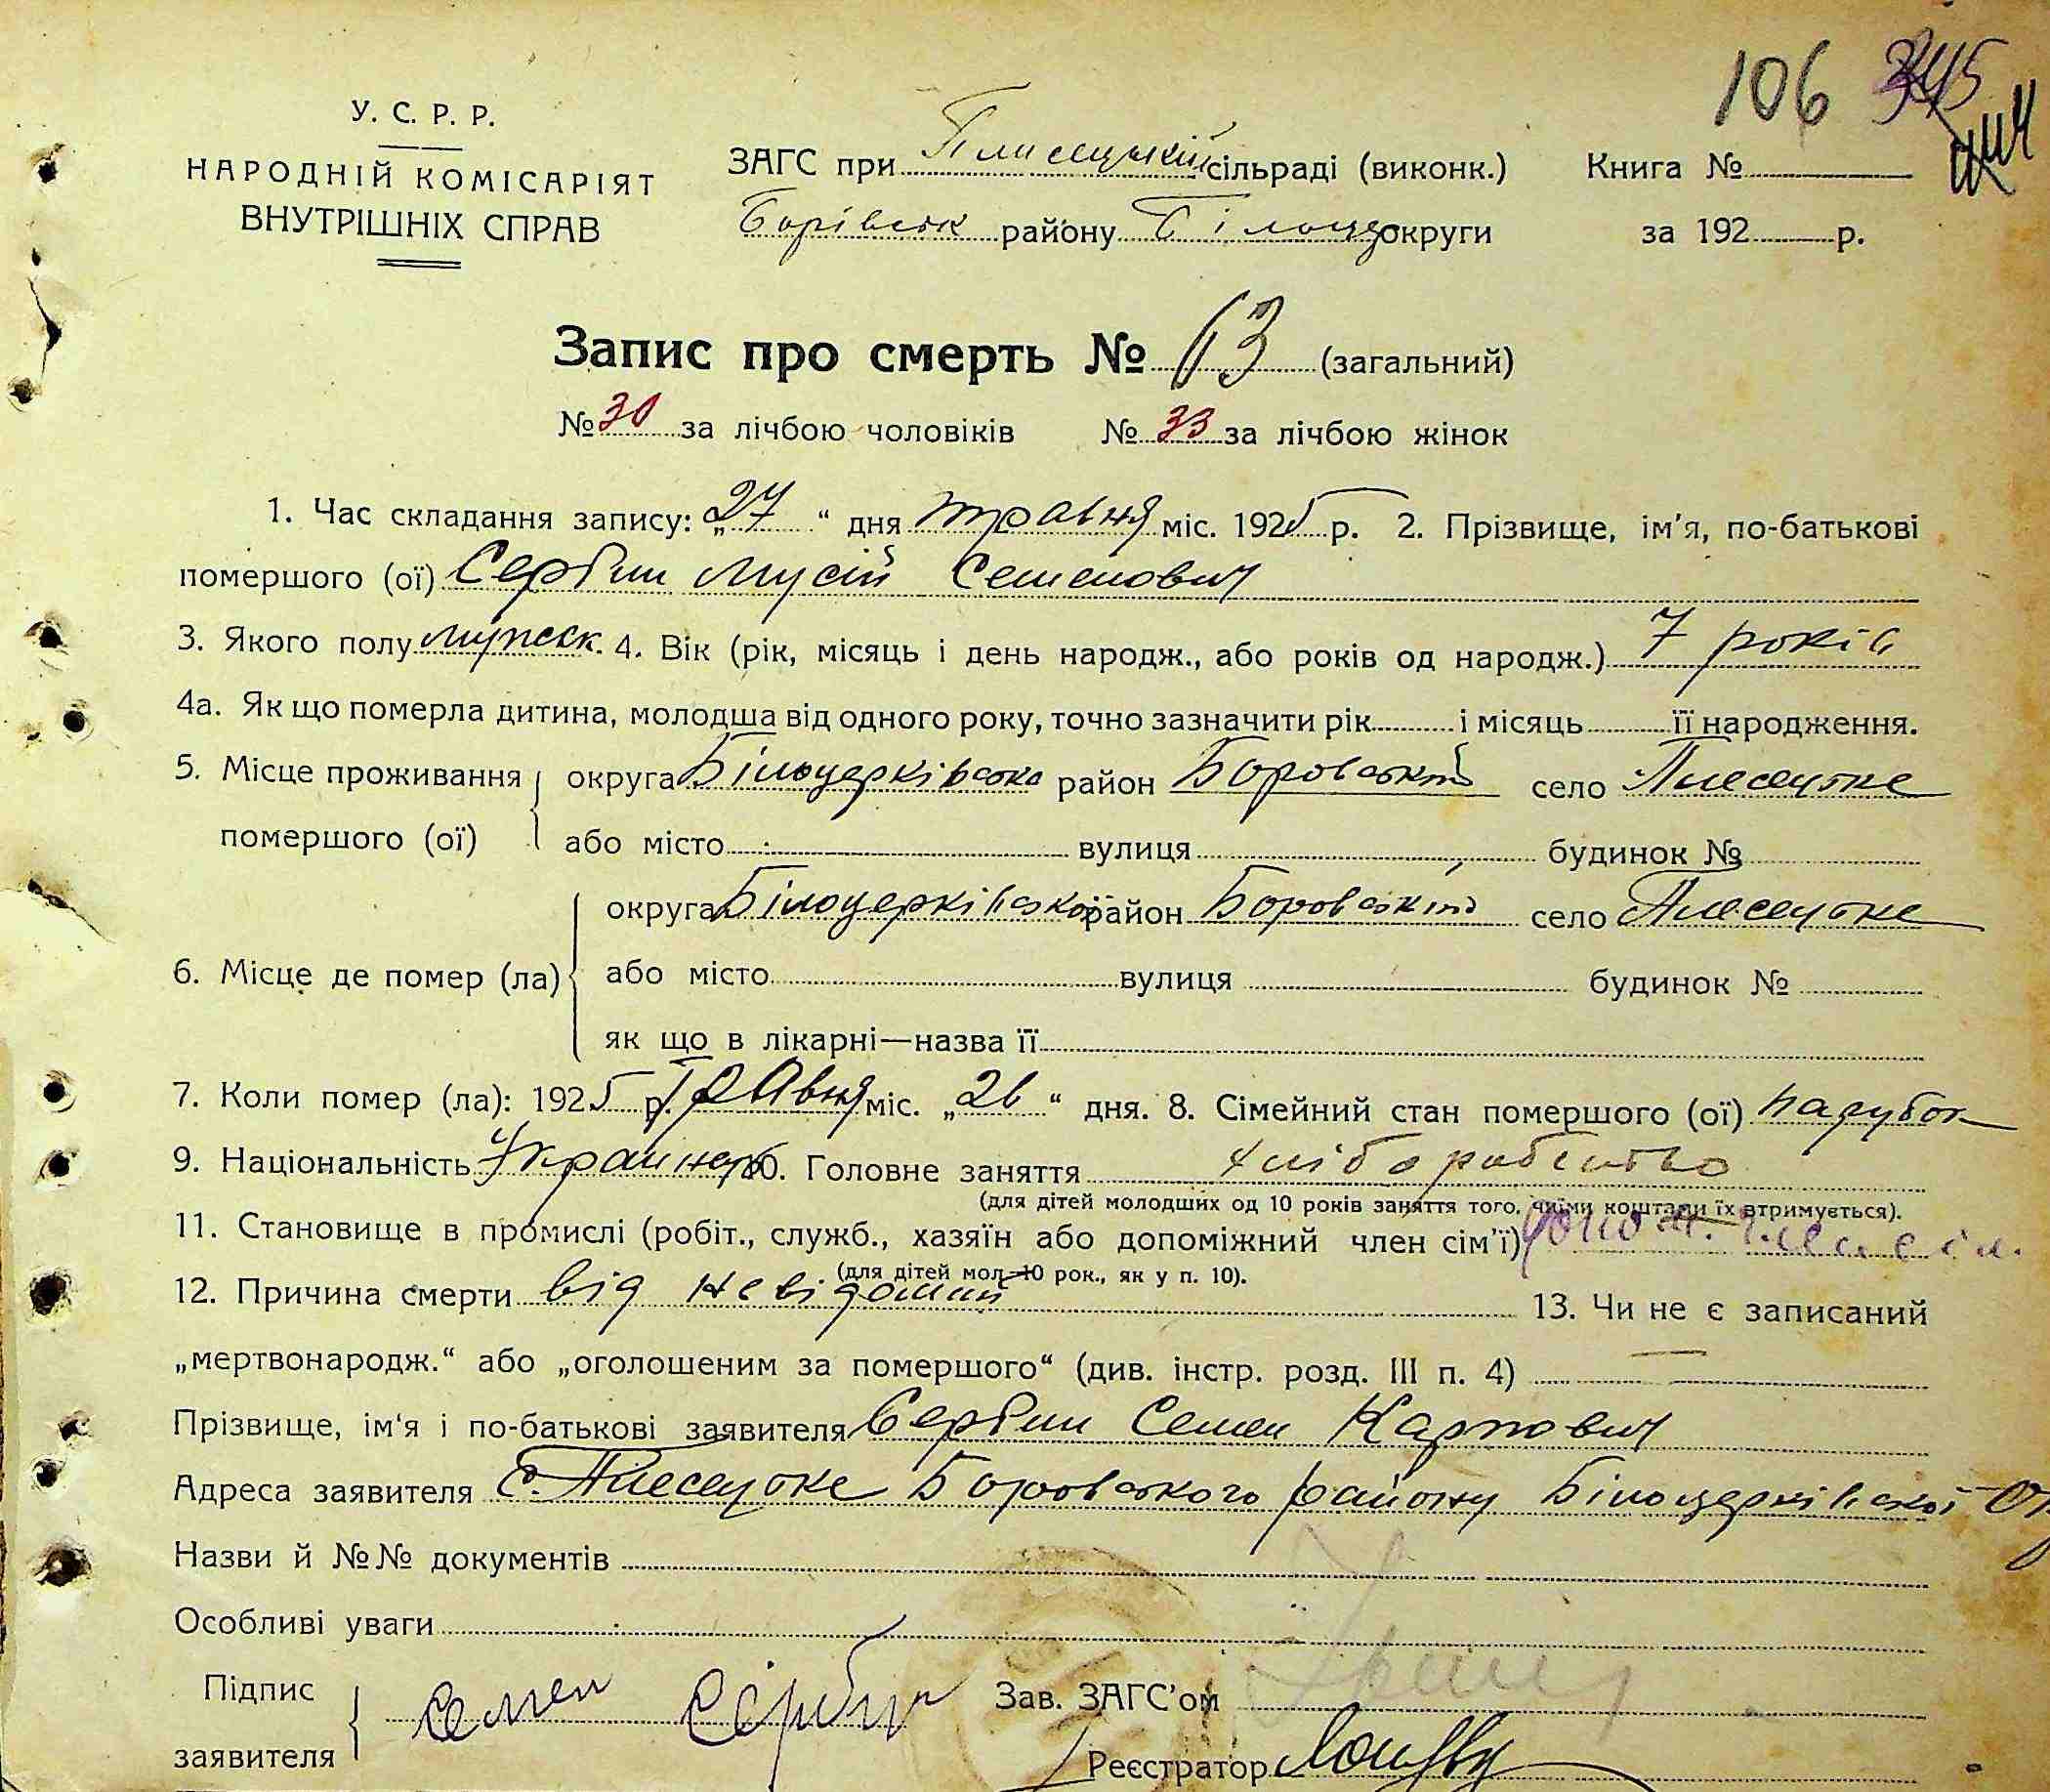 106 345
У. С. Р. Р.
НАРОДНІЙ КОМІСАРІЯТ
ВНУТРІШНІХ СПРАВ
ЗАГС при Плисецькій сільраді (виконк.) Книга №
Борівськ району Білоцер округи за 192 р.
Запис про смерть № 63 (загальний)
№ 30 за лічбою чоловіків № 33 за лічбою жінок
1. Час складання запису: „27“ дня травня міс. 1925 р. 2. Прізвище, ім’я, по-батькові
помершого (ої) Сербин Мусій Семенович
3. Якого полу мужеск. 4. Вік (рік, місяць і день народж., або років од народж.) 7 років
4а. Як що померла дитина, молодша від одного року, точно зазначити рік і місяць її народження.
5. Місце проживання округа Білоцерківська район Боровський село Плесецке
помершого (ої) або місто вулиця будинок №
округа Білоцерківської район Боровський село Плесецке
6. Місце де помер (ла) або місто вулиця будинок №
як що в лікарні—назва її
7. Коли помер (ла): 1925 р. Травня міс. „26“ дня. 8. Сімейний стан помершого (ої) парубок
9. Національність Українец 10. Головне заняття хліборобство
(для дітей молодших од 10 років заняття того, чиїми коштами їх втримується).
11. Становище в промислі (робіт., служб., хазяїн або допоміжний член сім’ї) допом. член сім.
(для дітей мол. 10 рок., як у п. 10).
12. Причина смерти від невідомий 13. Чи не є записаний
„мертвонародж.“ або „оголошеним за помершого“ (див. інстр. розд. III п. 4) —
Прізвище, ім‘я і по-батькові заявителя Сербин Семен Карпович
Адреса заявителя с. Плесецке Боровського району Білоцерківської
Назви й №№ документів
Особливі уваги
Підпис
заявителя Семен Сербин Зав. ЗАГС’ом
Реєстратор